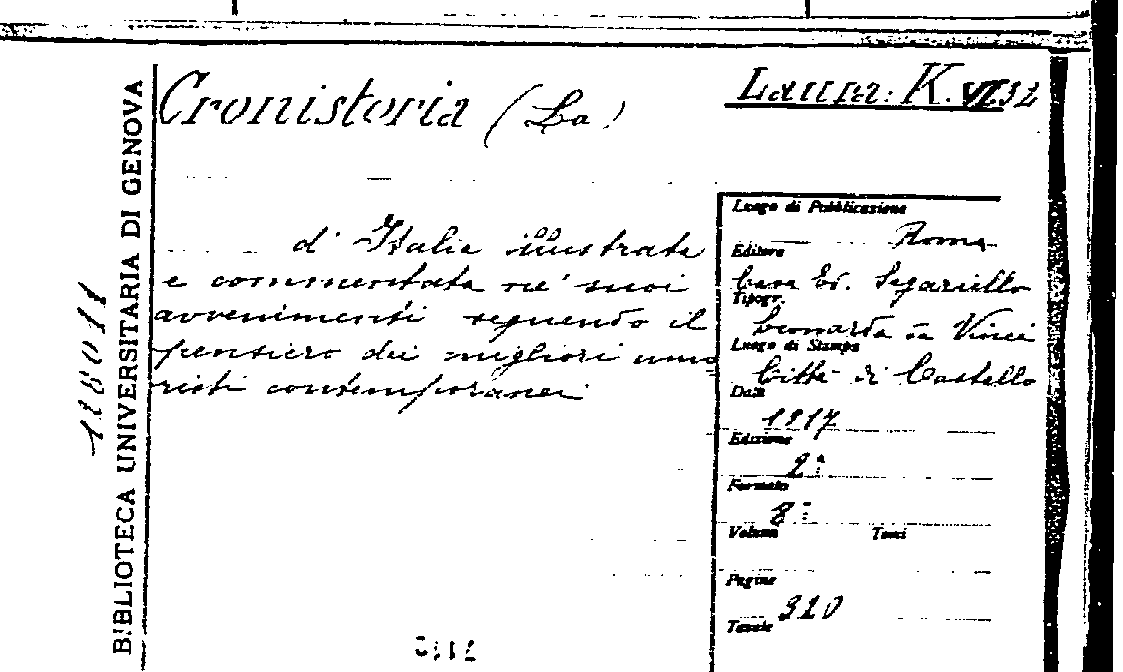 Cronistoria (La)
Laura: K.VI.32
BIBLIOTECA UNIVERSITARIA DI GENOVA
d'Italia illustrata
e commentata ne' suoi
avvenimenti seguendo il
pensiero dei migliori umo=
risti contemporanei
Luogo di Pubblicazione
Roma
Editore
Casa Ed.
Tipogr.
Leonardo da Vinci
Luogo di Stampa
Città di Castello
Data
1917
Edizione
2ª
Formato
8°
Volumi Tomi
Pagine
320
Tavole